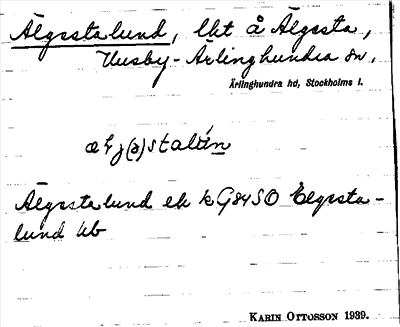 Älgsstalund, lht å Älgsta,
Husby-Ärlinghundra sn,
Ärlinghundra hd, Stockholms l.
Älgsstalund ek kG84SO Elgsta-
lund ub
KARIN OTTOSSON 1939.